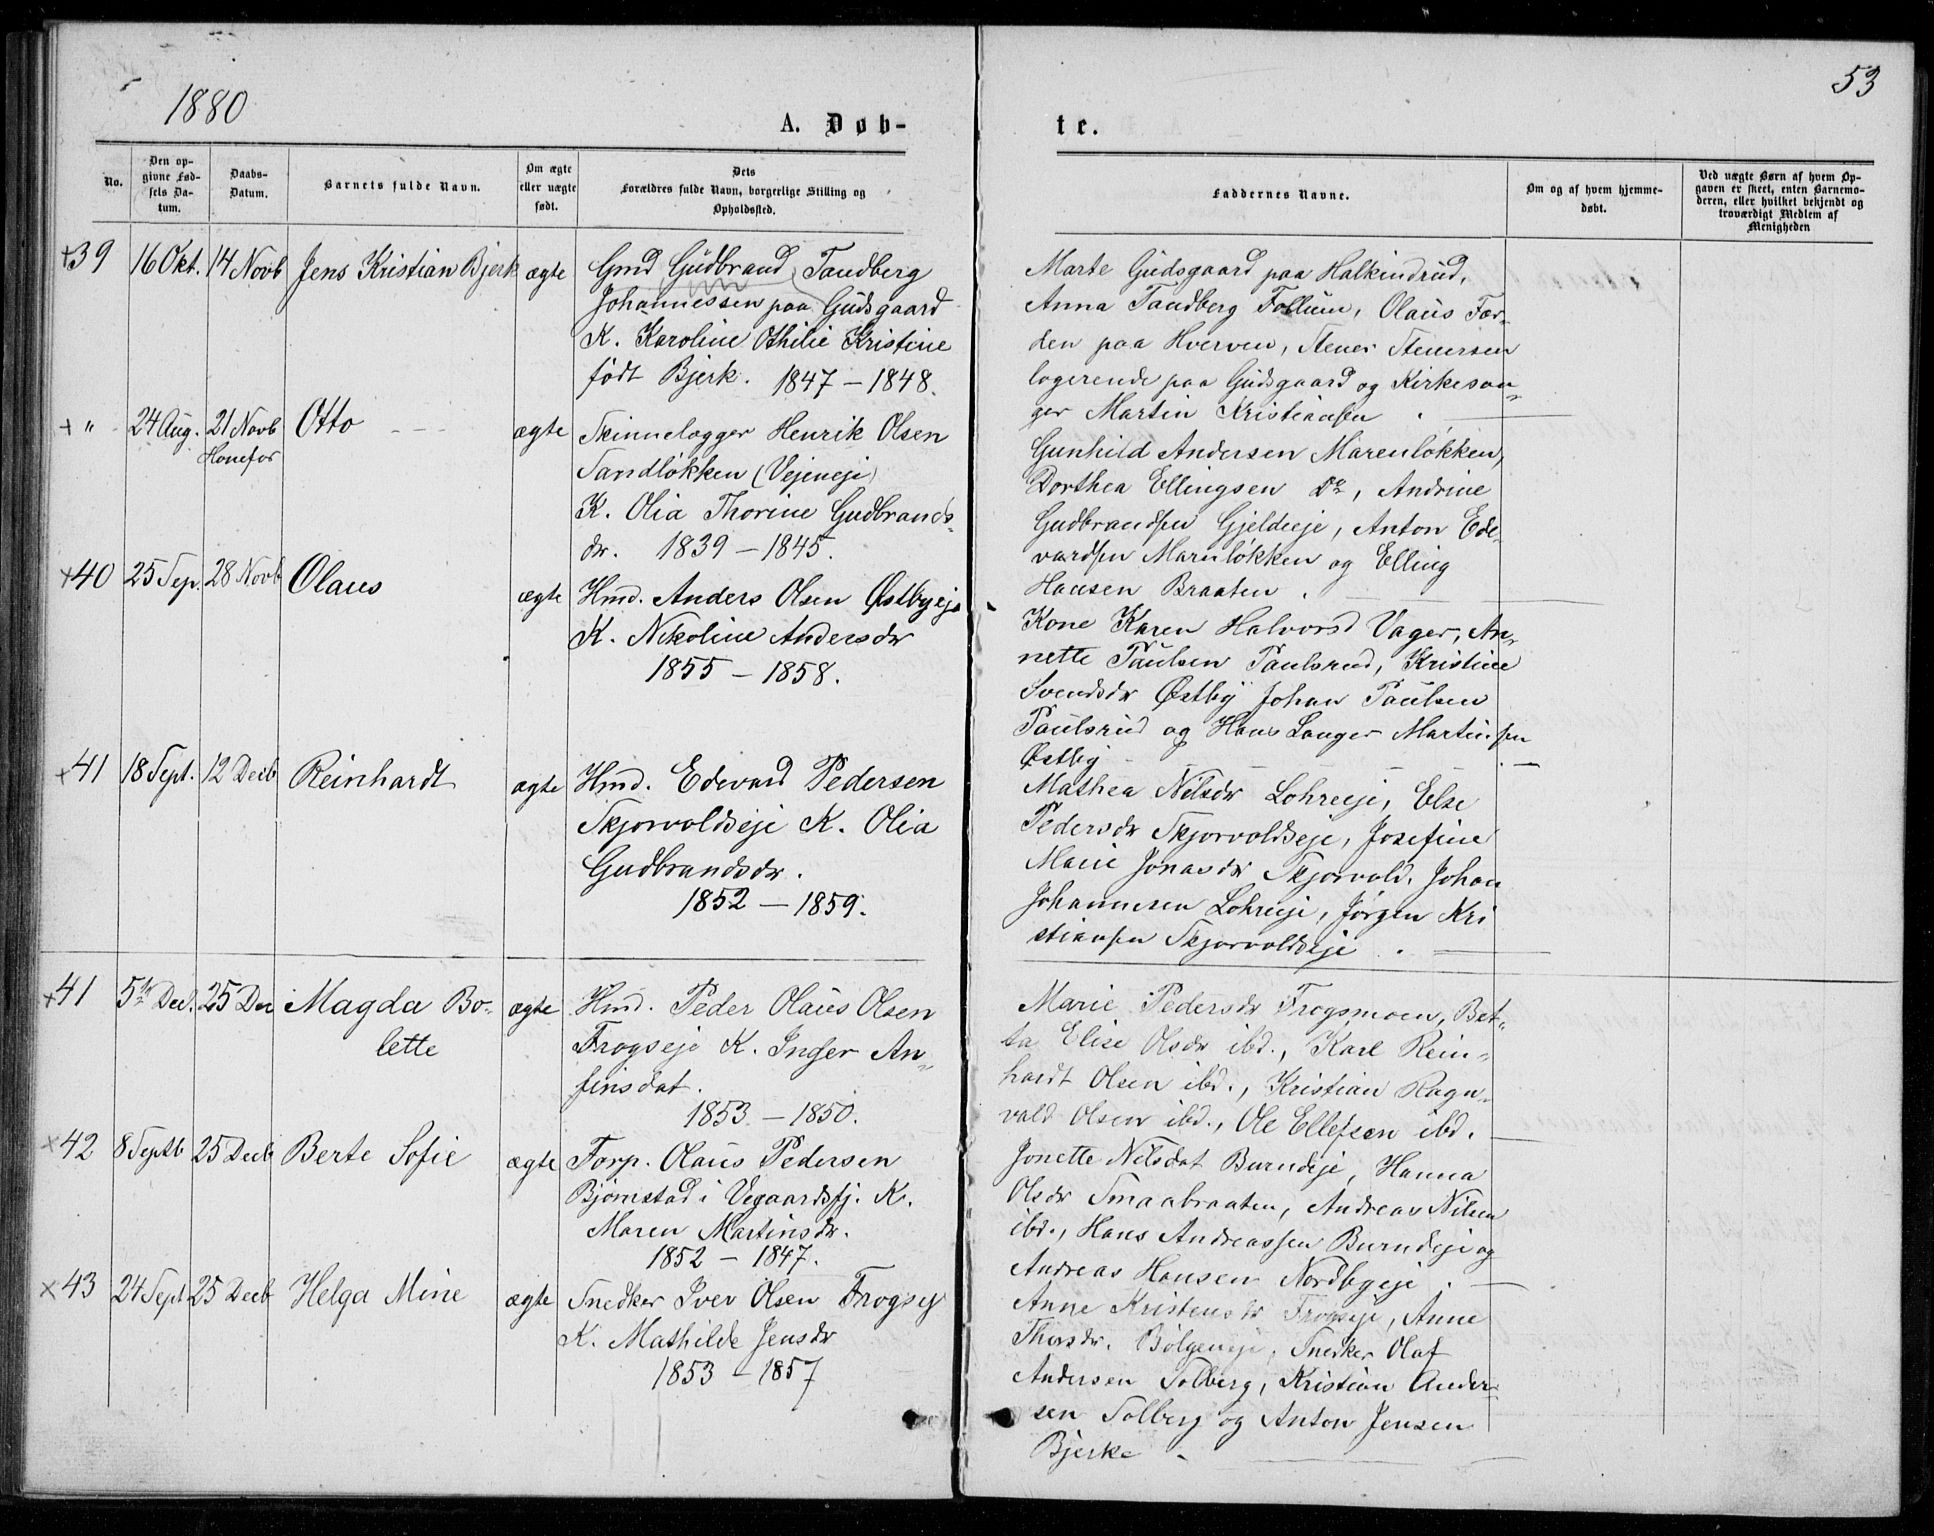 1880
53
A. Døb-
te.
No.
Den op-
givne Fød-
sels Da-
tum.
Daabs-
Datum.
Barnets fulde Navn.
Om ægte
eller uægte
født.
Dets
Forældres fulde Navn, borgerlige Stilling og
Opholdssted.
Faddernes Navne.
Om og af hvem hjemme-
døbt.
Ved uægte Børn af hvem Op-
gaven er skeet, enten Barnemo-
deren, eller hvilket bekjendt og
troværdigt Medlem af
Menigheden
+39 16 Okt. 14 Novb Jens Kristian Bjerk ægte
Gmd Gudbrand Tandberg
Johannessen paa Gudsgaard
K. Karoline Othilie Kristine
født Bjerk. 1847 – 1848.
Marte Gudsgaard paa Halkindrud,
Anna Tandberg Follum, Olaus Fær-
den paa Hverven, Stener Stenersen
logerende paa Gudsgaard og Kirkesan-
ger Martin Kristiansen
+ " 24 Aug. 21 Novb Otto ægte
Honefos
Skinnelægger Henrik Olsen
Sandløkken (Vejeneje)
K. Olia Thorine Gudbrands-
dr. 1839 – 1845.
Gunhild Andersen Marenløkken,
Dorthea Ellingsen Do, Andrine
Gudbrandsen Gjeldseje, Anton Ed-
vardsen Marenløkken og Elling
Hansen Braaten.
+40 25 Sep. 28 Novb Olaus ægte
Hmd. Anders Olsen Østbyeje
K. Nikoline Andersdr
1855 – 1858.
Kone Karen Halvorsd Vager, An-
nette Paulsen Paulsrud, Kristine
Svendsdr Østby Johan Paulsen
Paulsrud og Hans Langer Martinsen
Østby
+41 18 Sept. 12 Decb Reinhardt ægte
Hmd. Edevard Pedersen
Skjorvoldseje K. Olia
Gudbrandsdr.
1852 – 1859.
Mathea Nilsdr Lohreeje, Else
Pedersdr Skjorvoldseje, Josefine
Marie Jonasdr Skjorvold, Johan
Johannesen Lohreeje, Jørgen Kri
stiansen Skjorvoldseje.
+41 5te Dec. 25 Dec Magda Bo-
lette ægte
Hmd. Peder Olaus Olsen
Frogseje K. Inger An-
finsdat.
1853 – 1850.
Marie Pedersdr Frogsmoen, Bet-
ta Elise Olsdr ibd., Karl Rein-
hardt Olsen ibd., Kristian Ragn-
vald Olsen ibd., Ole Ellefsen ibd.
×42 8 Septb 25 Decb Berte Sofie ægte
Forp. Olaus Pedersen
Bjørnstad i Vegaardsfj. K.
Maren Martinsdr.
1852 – 1847.
Jonette Nilsdat Burudeje, Hanna
Olsdr Smaabraaten, Andreas Nilsen
ibd., Hans Andreassen Burudeje og
Andreas Hansen Nordbyeje.
×43 24 Sept 25 Decb Helga Mine ægte
Snedker Iver Olsen Frogsej
K. Mathilde Jensdr
1853 – 1857
Anne Kristensdr Frogseje, Anne
Thorsdr. Bølgeneje, Snedker Olaf
Andersen Solberg, Kristian Ander-
sen Solberg og Anton Jensen
Bjerke